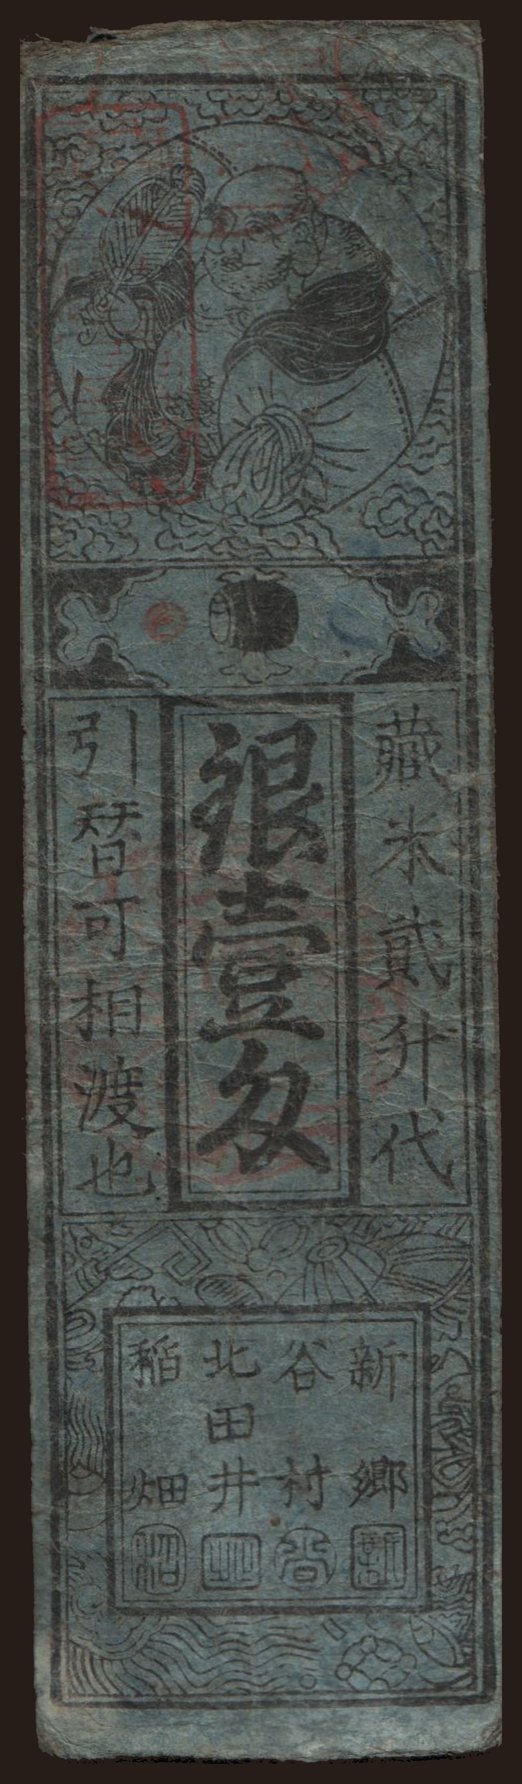 藏米貳升代
銀壹匁
引替可相渡也
新郷
谷村
北田井
稲畑